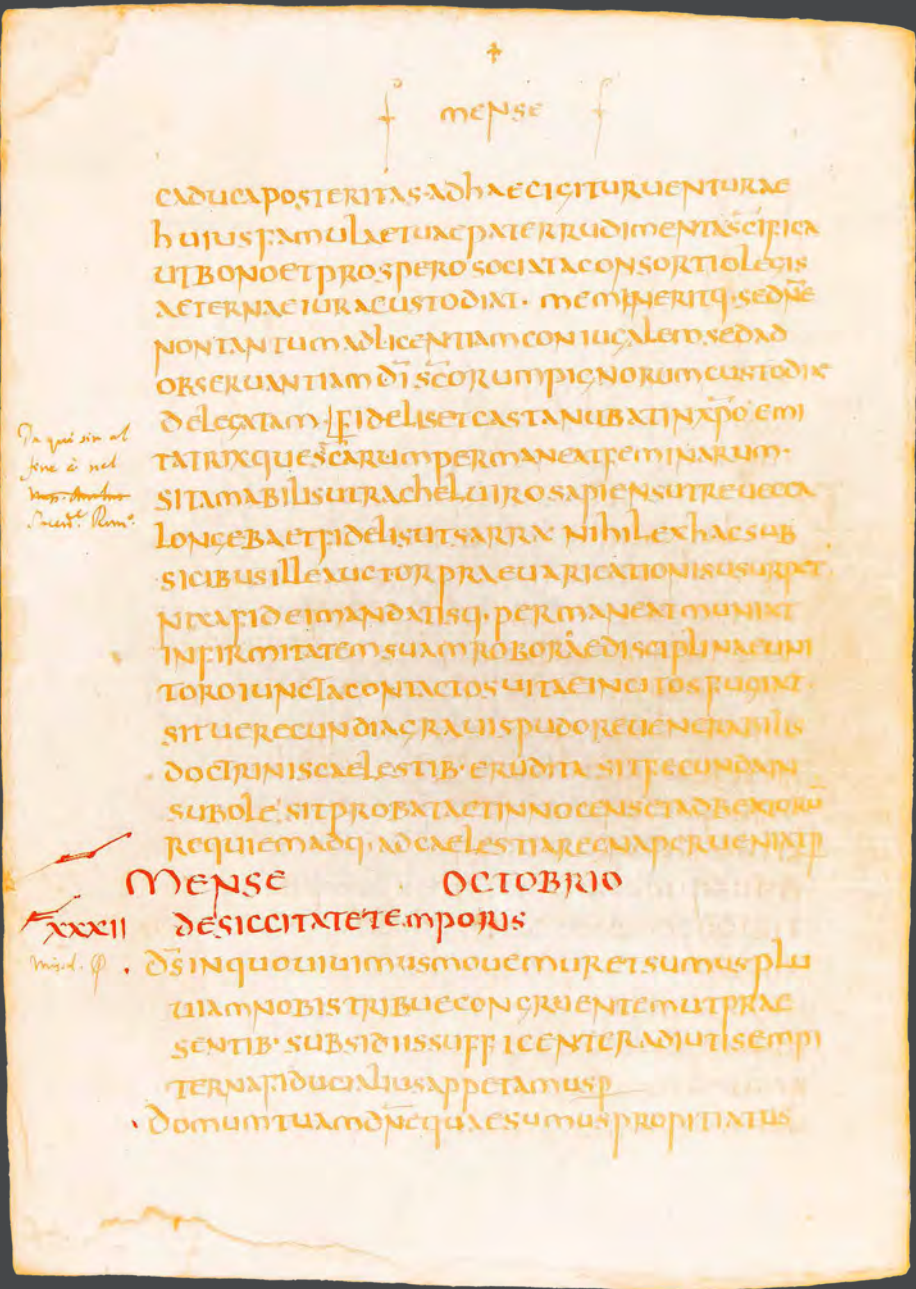 MENSE
CADUCAPOSTERITAS·ADHAECIGITURUENTURAE
HUIUSFAMULAETUAEPATERRUDIMENTASC̄IFICA
UTBONOETPROSPEROSOCIATACONSORTIOLEGIS
AETERNAEIURACUSTODIAT·MEMINERITQ·SEDN̄E
NONTANTUMADLICENTIAMCONIUGALEMSEDAD
OBSERUANTIAMDĪSC̄ORUMPIGNORUMCUSTODIAE
DELEGATAM FIDELISETCASTANUBATINXP̄OEMI
TATRIXQUESC̄ARUMPERMANEATFEMINARUM·
SITAMABILISUTRACHELUIROSAPIENSUTREUECCA
LONGEBAETFIDELISUTSARRA NIHILEXHACSUB
SICIBUSILLEAUCTORPRAEUARICATIONISUSURPET·
NIXAFIDEIMANDATISQ·PERMANEATMUNIAT
INFIRMITATEMSUAMROBORAEDISCIPLINAEUNI
TOROIUNCTACONTACTOSUITAEINCITOSFUGIAT·
SITUERECUNDIAGRAUISPUDOREUENERABILIS
DOCTRINISCAELESTIB·ERUDITA SITFECUNDAIN
SUBOLE·SITPROBATAETINNOCENSETADBEATORŪ
REQUIEMADQ·ADCAELESTIAREGNAPERUENIATP̄
Da qui sin al
fine è nel
MENSE OCTOBRIO
XXXII DESICCITATETEMPORIS
D̄SINQUOUIUIMUSMOUEMURETSUMUSPLU
UIAMNOBISTRIBUECONGRUENTEMUTPRAE
SENTIB·SUBSIDIISSUFFICENTERADIUTISEMPI
TERNAFIDUCIALIUSAPPETAMUSP̄
DOMUMTUAMDN̄EQUAESUMUSPROPITIATUS